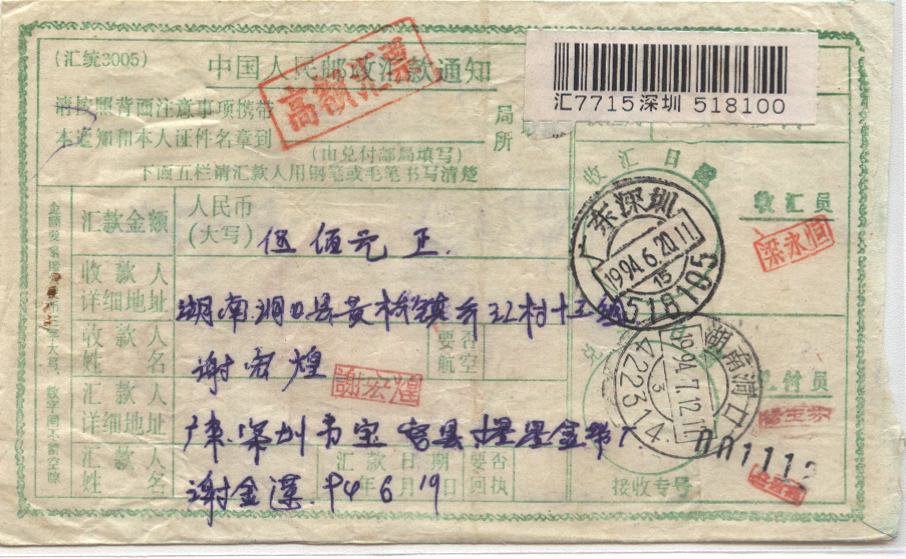 (汇统3005)
中国人民邮政汇款通知
高额汇票
汇7715深圳 518100
请按照背面注意事项携带
本通知和本人证件名章到
局
所
(由兑付部局填写)
下面五栏请汇款人用钢笔或毛笔书写清楚
汇款金额
人民币
(大写)
伍佰元正.
收款人
详细地址
湖南洞口县黄桥镇
收款人
姓名
谢宏煌
謝宏煌
要否
航空
汇款人
详细地址
广东.深圳市宝
汇款人
姓名
谢金
94 6 19
汇款日期
年 月 日
要否
回执
收汇日戳
广东深圳
1994.6.20.11
15
518105
收汇员
梁永恒
湖南洞口
1994.7.12.17
3
422314
兑付员
001112
接收专号